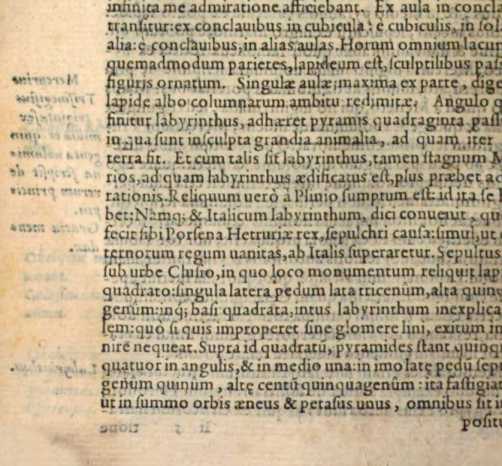 infinita me admiratione afficiebant. Ex aula in concla
transitur: ex conclauibus in cubicula: e cubiculis, in so
alia: e conclauibus, in alias aulas. Horum omnium lacun
quemadmodum parietes, lapideum est, sculptilibus passi
figuris ornatum. Singulæ aulæ, maxima ex parte, dige
lapide albo columnarum ambitu redimitæ. Angulo q
finitur labyrinthus, adhæret pyramis quadraginta pass
in qua sunt insculpta grandia animalia, ad quam iter
terra fit. Et cum talis sit labyrinthus, tamen stagnum M
rios, ad quam labyrinthus ædificatus est, plus præbet ad
rationis. Reliquum uerò à Plinio sumptum est: id ita se h
bet: Namq; & Italicum labyrinthum, dici conuenit, qu
fecit sibi Porsena Hetruriæ rex, sepulchri causa: simul, ut e
ternorum regum uanitas, ab Italis superaretur. Sepultus
sub urbe Clusio, in quo loco monumentum reliquit lap
quadrato: singula latera pedum lata tricenûm, alta quin
genûm: inq; basi quadrata, intus labyrinthum inexplica
lem: quo si quis improperet sine glomere lini, exitum in
nire nequeat. Supra id quadratũ, pyramides stant quinq
quatuor in angulis, & in medio una: in imo latę pedũ sep
genûm quinum, altę centũ quinquagenûm: ita fastigia
ut in summo orbis æneus & petasus unus, omnibus sit i
positu